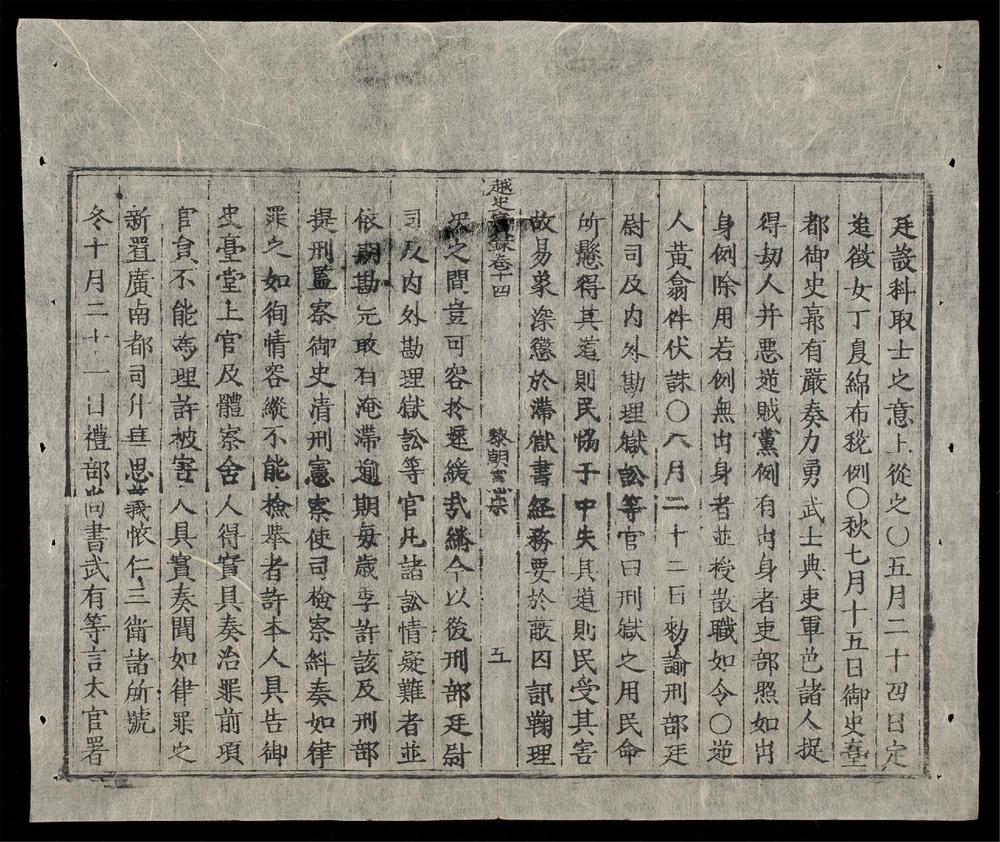 廷設科取士之意上從之〇五月二十四日定
進徵女丁夏綿布稅例〇秋七月十五日御史臺
都御史郭有嚴奏力勇武士典吏軍色諸人捉
得劫人并惡逆賊黨例有出身者吏部照如出
身例除用若例無出身者並授散職如令〇逆
人黃翁件伏誅〇八月二十二日勑諭刑部廷
尉司及内外勘理獄訟等官曰刑獄之用民命
所懸得其道則民恊于中失其道則民受其害
故易象深懲於滯獄書經務要於蔽囚訊鞠理
越史實録卷十四
黎朝憲宗
五
之間豈可容於遲緩哉継今以後刑部廷尉
司及内外勘理獄訟等官凡諸訟情疑難者並
依期勘完敢有淹滯逾期每歲季許該及刑部
提刑監察御史清刑憲察使司檢察糾奏如律
罪之如徇情容縱不能檢舉者許本人具告御
史臺堂上官及體察舍人得實具奏治罪前項
官員不能為理許被害人具實奏聞如律罪之
新置廣南都司升華思義懷仁三衛諸所號
冬十月二十一日禮部尚書武有等言太官署